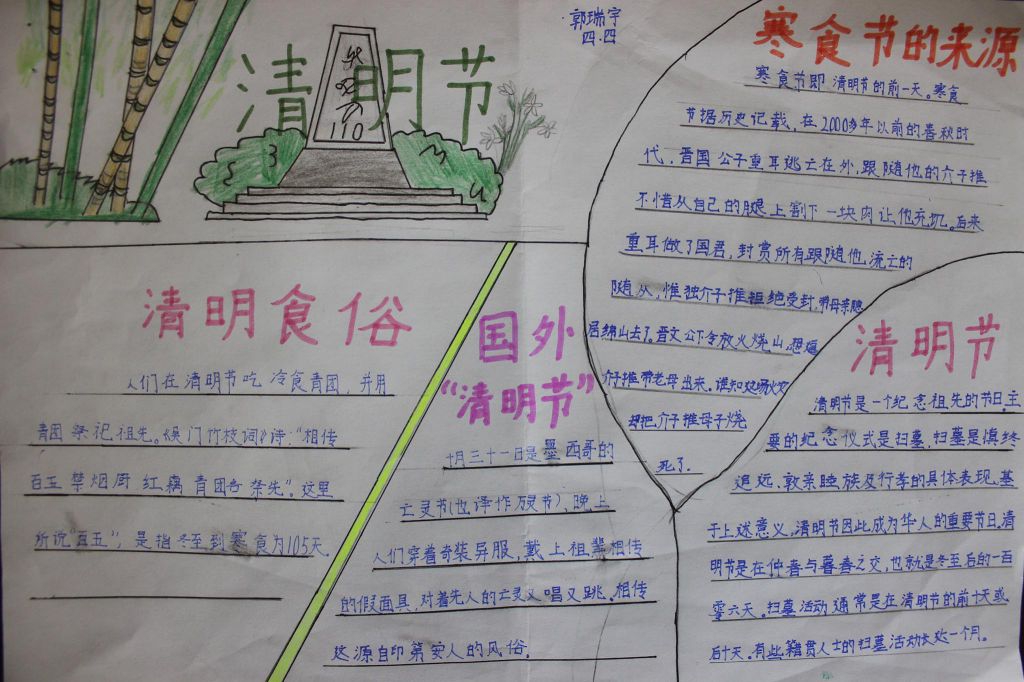 清明节
郭瑞宇
四.四
寒食节的来源
寒食节即清明节的前一天。寒食
节据历史记载,在2000多年以前的春秋时
代,晋国公子重耳逃亡在外,跟随他的介子推
不惜从自己的腿上割下一块肉让他充饥。后来
重耳做了国君,封赏所有跟随他流亡的
随从,惟独介子推拒绝受封,带母亲隐
居绵山去了。晋文公下令放火烧山,想逼
介子推带老母出来。谁知这场火
却把介子推母子烧
死了.
清明食俗
人们在清明节吃冷食青团,并用
青团祭祀祖先。《吴门竹枝词》诗:“相传
百五禁烟厨 红藕青团各祭先”。这里
所说“百五”,是指冬至到寒食为105天
国外
“清明节”
十月三十一日是墨西哥的
亡灵节(也译作万灵节),晚上
人们穿着奇装异服,戴上祖辈相传
的假面具,对着先人的亡灵又唱又跳.相传
这源自印第安人的风俗.
清明节
清明节是一个纪念祖先的节日.主
要的纪念仪式是扫墓,扫墓是慎终
追远、敦亲睦族及行孝的具体表现.基
于上述意义,清明节因此成为华人的重要节日.清
明节是在仲春与暮春之交,也就是冬至后的一百
零六天。扫墓活动通常是在清明节的前十天或
后十天。有些籍贯人士的扫墓活动长达一个月。